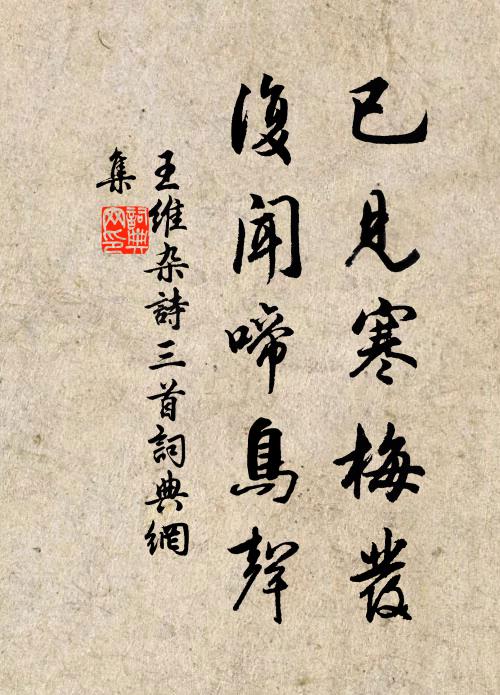 已見寒梅發
復聞啼鳥聲
王維杂詩三首詞典網
集
詞典
网印